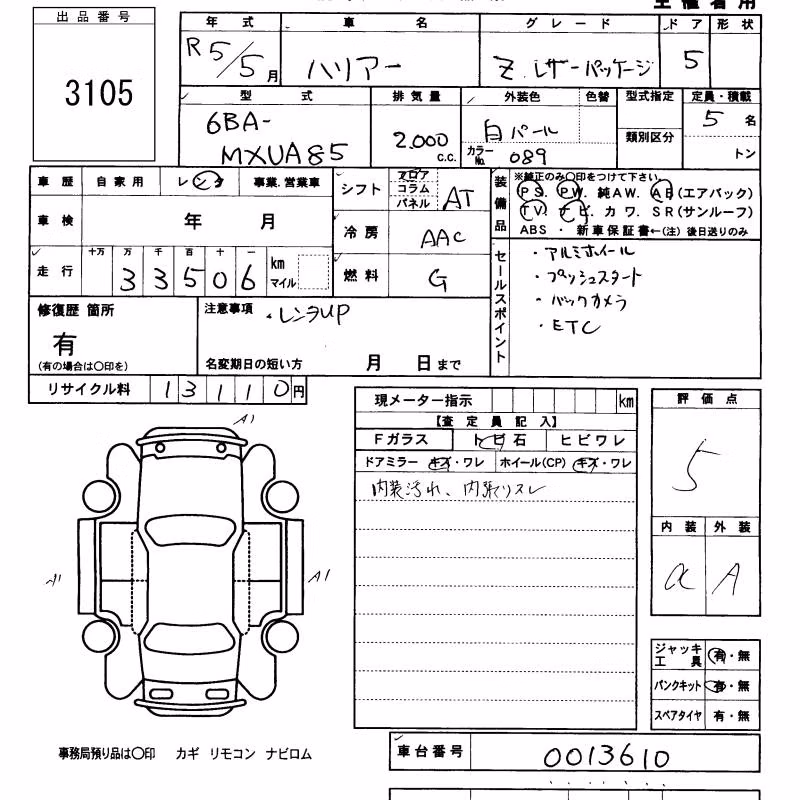 出品番号
3105
年式 車名 グレード ドア 形状
R5/5月 ハリアー Z レザーパッケージ 5
型式 排気量 外装色 色替 型式指定 定員・積載
6BA-
MXUA85
2.000 c.c.
白パール
カラーNo. 089
類別区分
5名
トン
車歴 自家用 レンタ 事業.営業車
シフト フロア コラム パネル AT
装備品
※純正のみ○印をつけて下さい。
PS. PW. 純AW. AB(エアバック)
TV. ナビ. カワ. SR(サンルーフ)
ABS ・ 新車保証書←(注)後日送りのみ
車検 年 月
冷房 AAC
走行 十万 万 千 百 十 一
33506 km マイル
燃料 G
セールスポイント
・アルミホイール
・プッシュスタート
・バックカメラ
・ETC
修復歴 箇所
有
(有の場合は○印を)
注意事項 ・レンタUP
名変期日の短い方 月 日まで
リサイクル料 13110円
現メーター指示 km
【査定員記入】
Fガラス トビ石 ヒビワレ
ドアミラー キズ・ワレ ホイール(CP) キズ・ワレ
内装汚れ、内張りスレ
評価点
5
内装 外装
α A
A1
A1
A1
ジャッキ 工具 有・無
パンクキット 有・無
スペアタイヤ 有・無
事務局預り品は○印 カギ リモコン ナビロム
車台番号 0013610